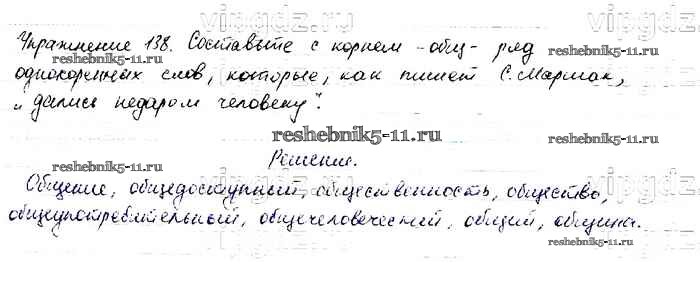 vipgdz
Упражнение 138. Составьте с корнем -общ- ряд
reshebnik5-11.ru reshebnik5-11.ru
однокоренных слов, которые, как пишет С. Маршак,
„дались недаром человеку".
vipgdz vipgdz
reshebnik5-11.ru
Решение.
reshebnik5-11.ru reshebnik5-11.ru
Общение, общедоступный, общественность, общество,
vipgdz
общеупотребительный, общечеловеческий, общий, община.
reshebnik5-11.ru